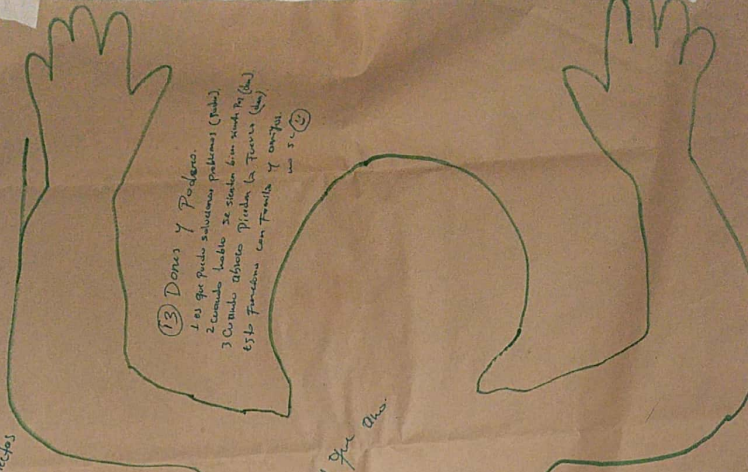 13 Dones y Poderes.
1 es que puedo solucionar problemas (poder)
2 cuando hablo se sienten bien siente Paz (don)
3 Cuando abrazo pierden la Fuerza (don)
Esto funciona con Familia y amigos.
que año.